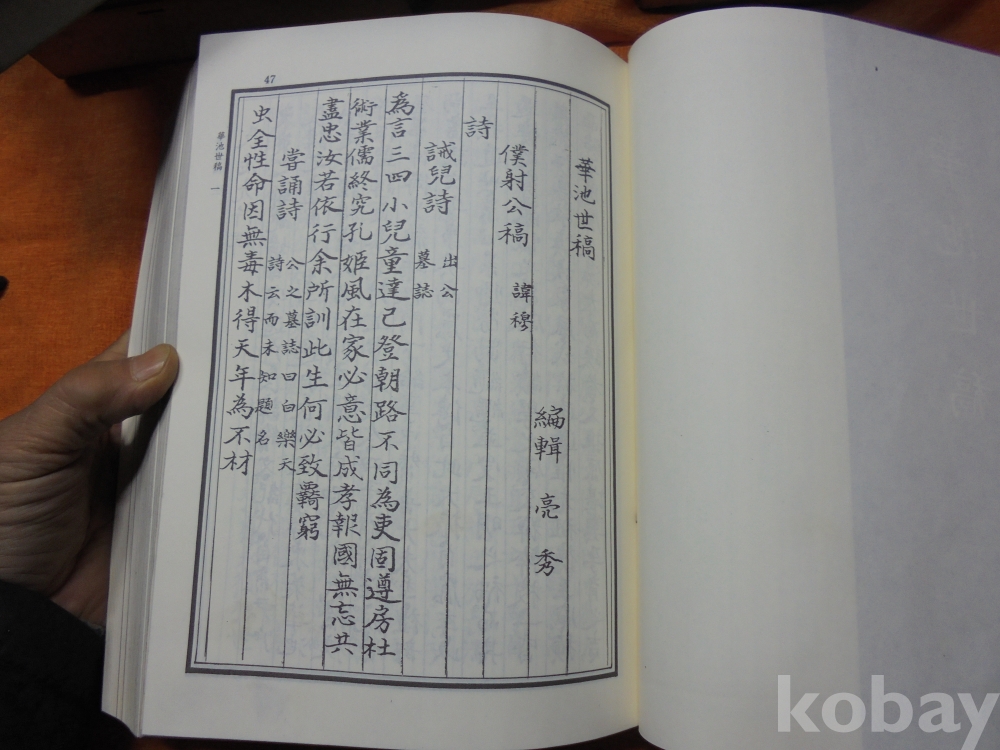 47
華池世稿
編輯 亮 秀
僕射公稿 諱穆
詩
誡兒詩 出公墓誌
為言三四小兒童達己登朝路不同為吏固遵房杜
術業儒終究孔姬風在家必意皆成孝報國無忘共
盡忠汝若依行余所訓此生何必致羇窮
嘗誦詩 公之墓誌曰白樂天詩云而未知題名
虫全性命因無毒木得天年為不材
華池世稿 一
kobay